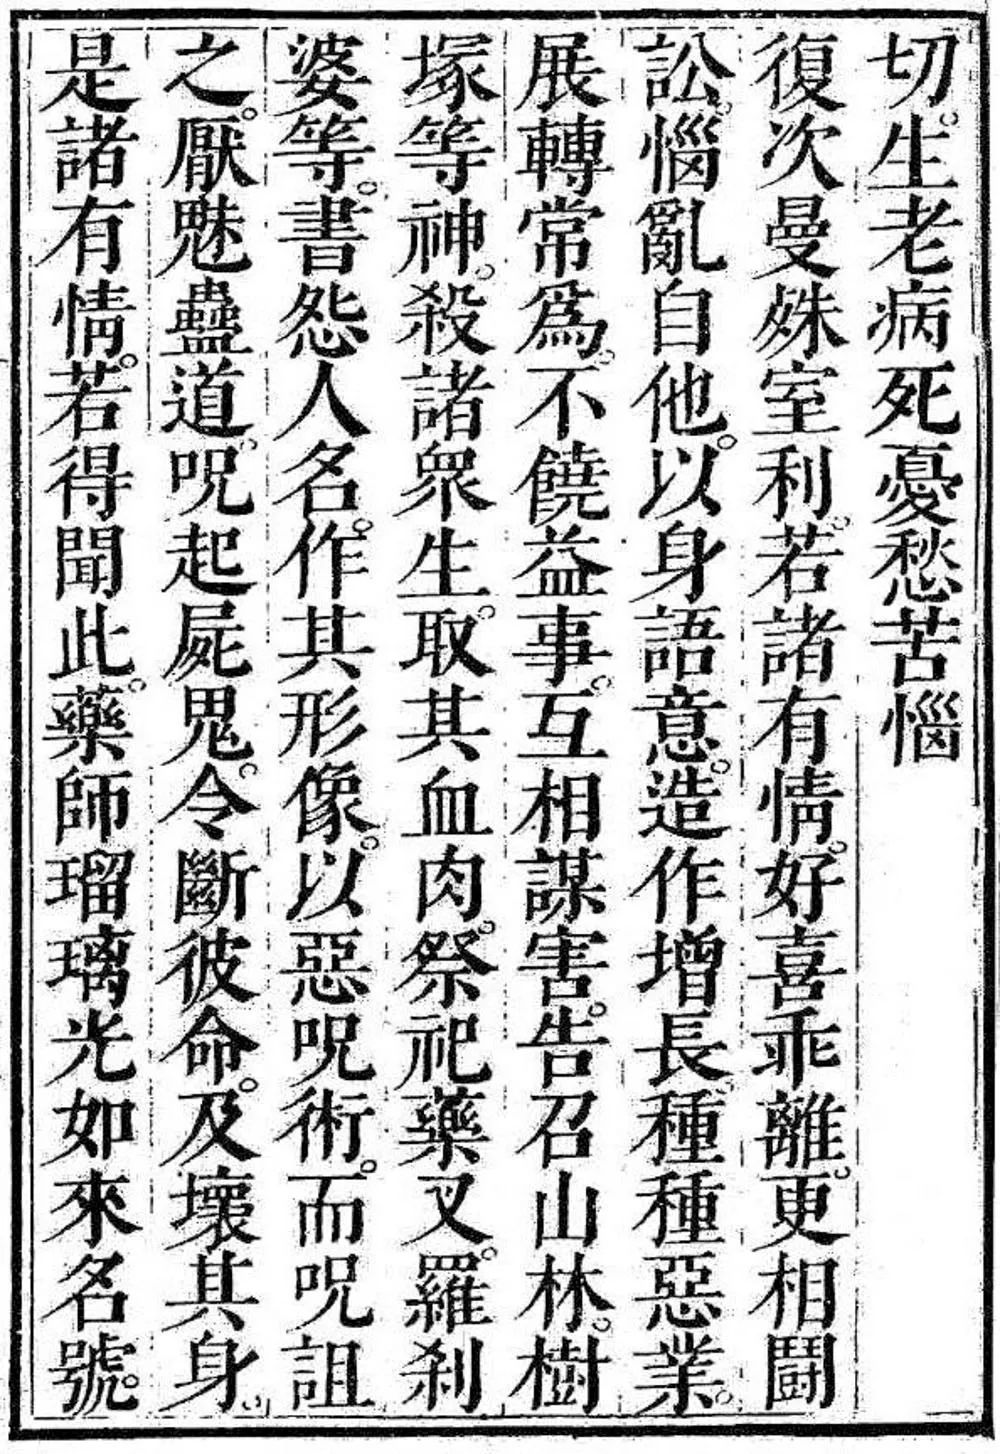 切。生老病死憂愁苦惱
復次曼殊室利。若諸有情。好喜乖離。更相鬪
訟。惱亂自他。以身語意。造作增長。種種惡業。
展轉常爲。不饒益事。互相謀害。告召山林。樹
塚等神。殺諸眾生。取其血肉。祭祀藥叉。羅剎
婆等。書怨人名。作其形像。以惡呪術。而呪詛
之。厭魅蠱道。呪起屍鬼。令斷彼命。及壞其身。
是諸有情。若得聞此。藥師瑠璃光如來名號。